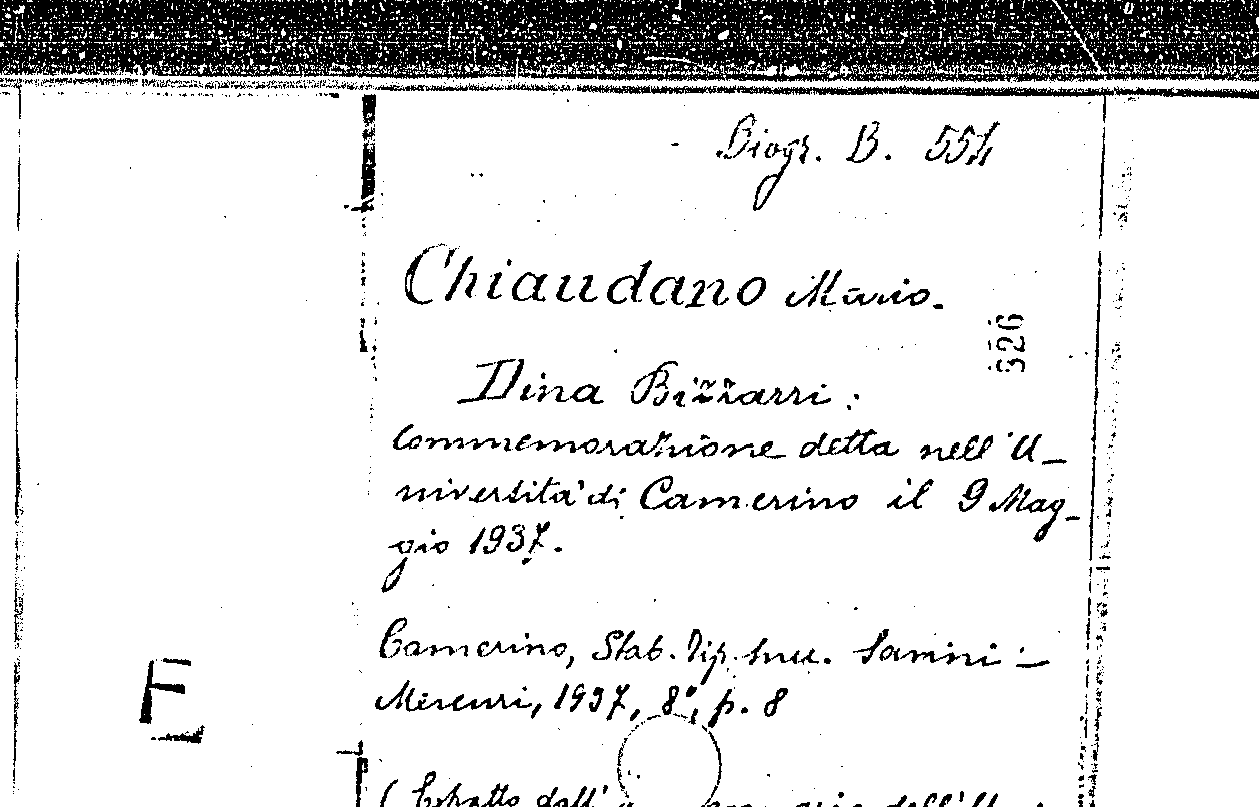 Biogr. B. 554
Chiaudano Mario.
326
Dina Bizzarri:
Commemorazione detta nell'U-
niversità di Camerino il 9 Mag-
gio 1937.
Camerino, Stab. Tip. Succ. Savini-
Mercuri, 1937, 8°, p. 8
E
(Estratto dall' dell'U